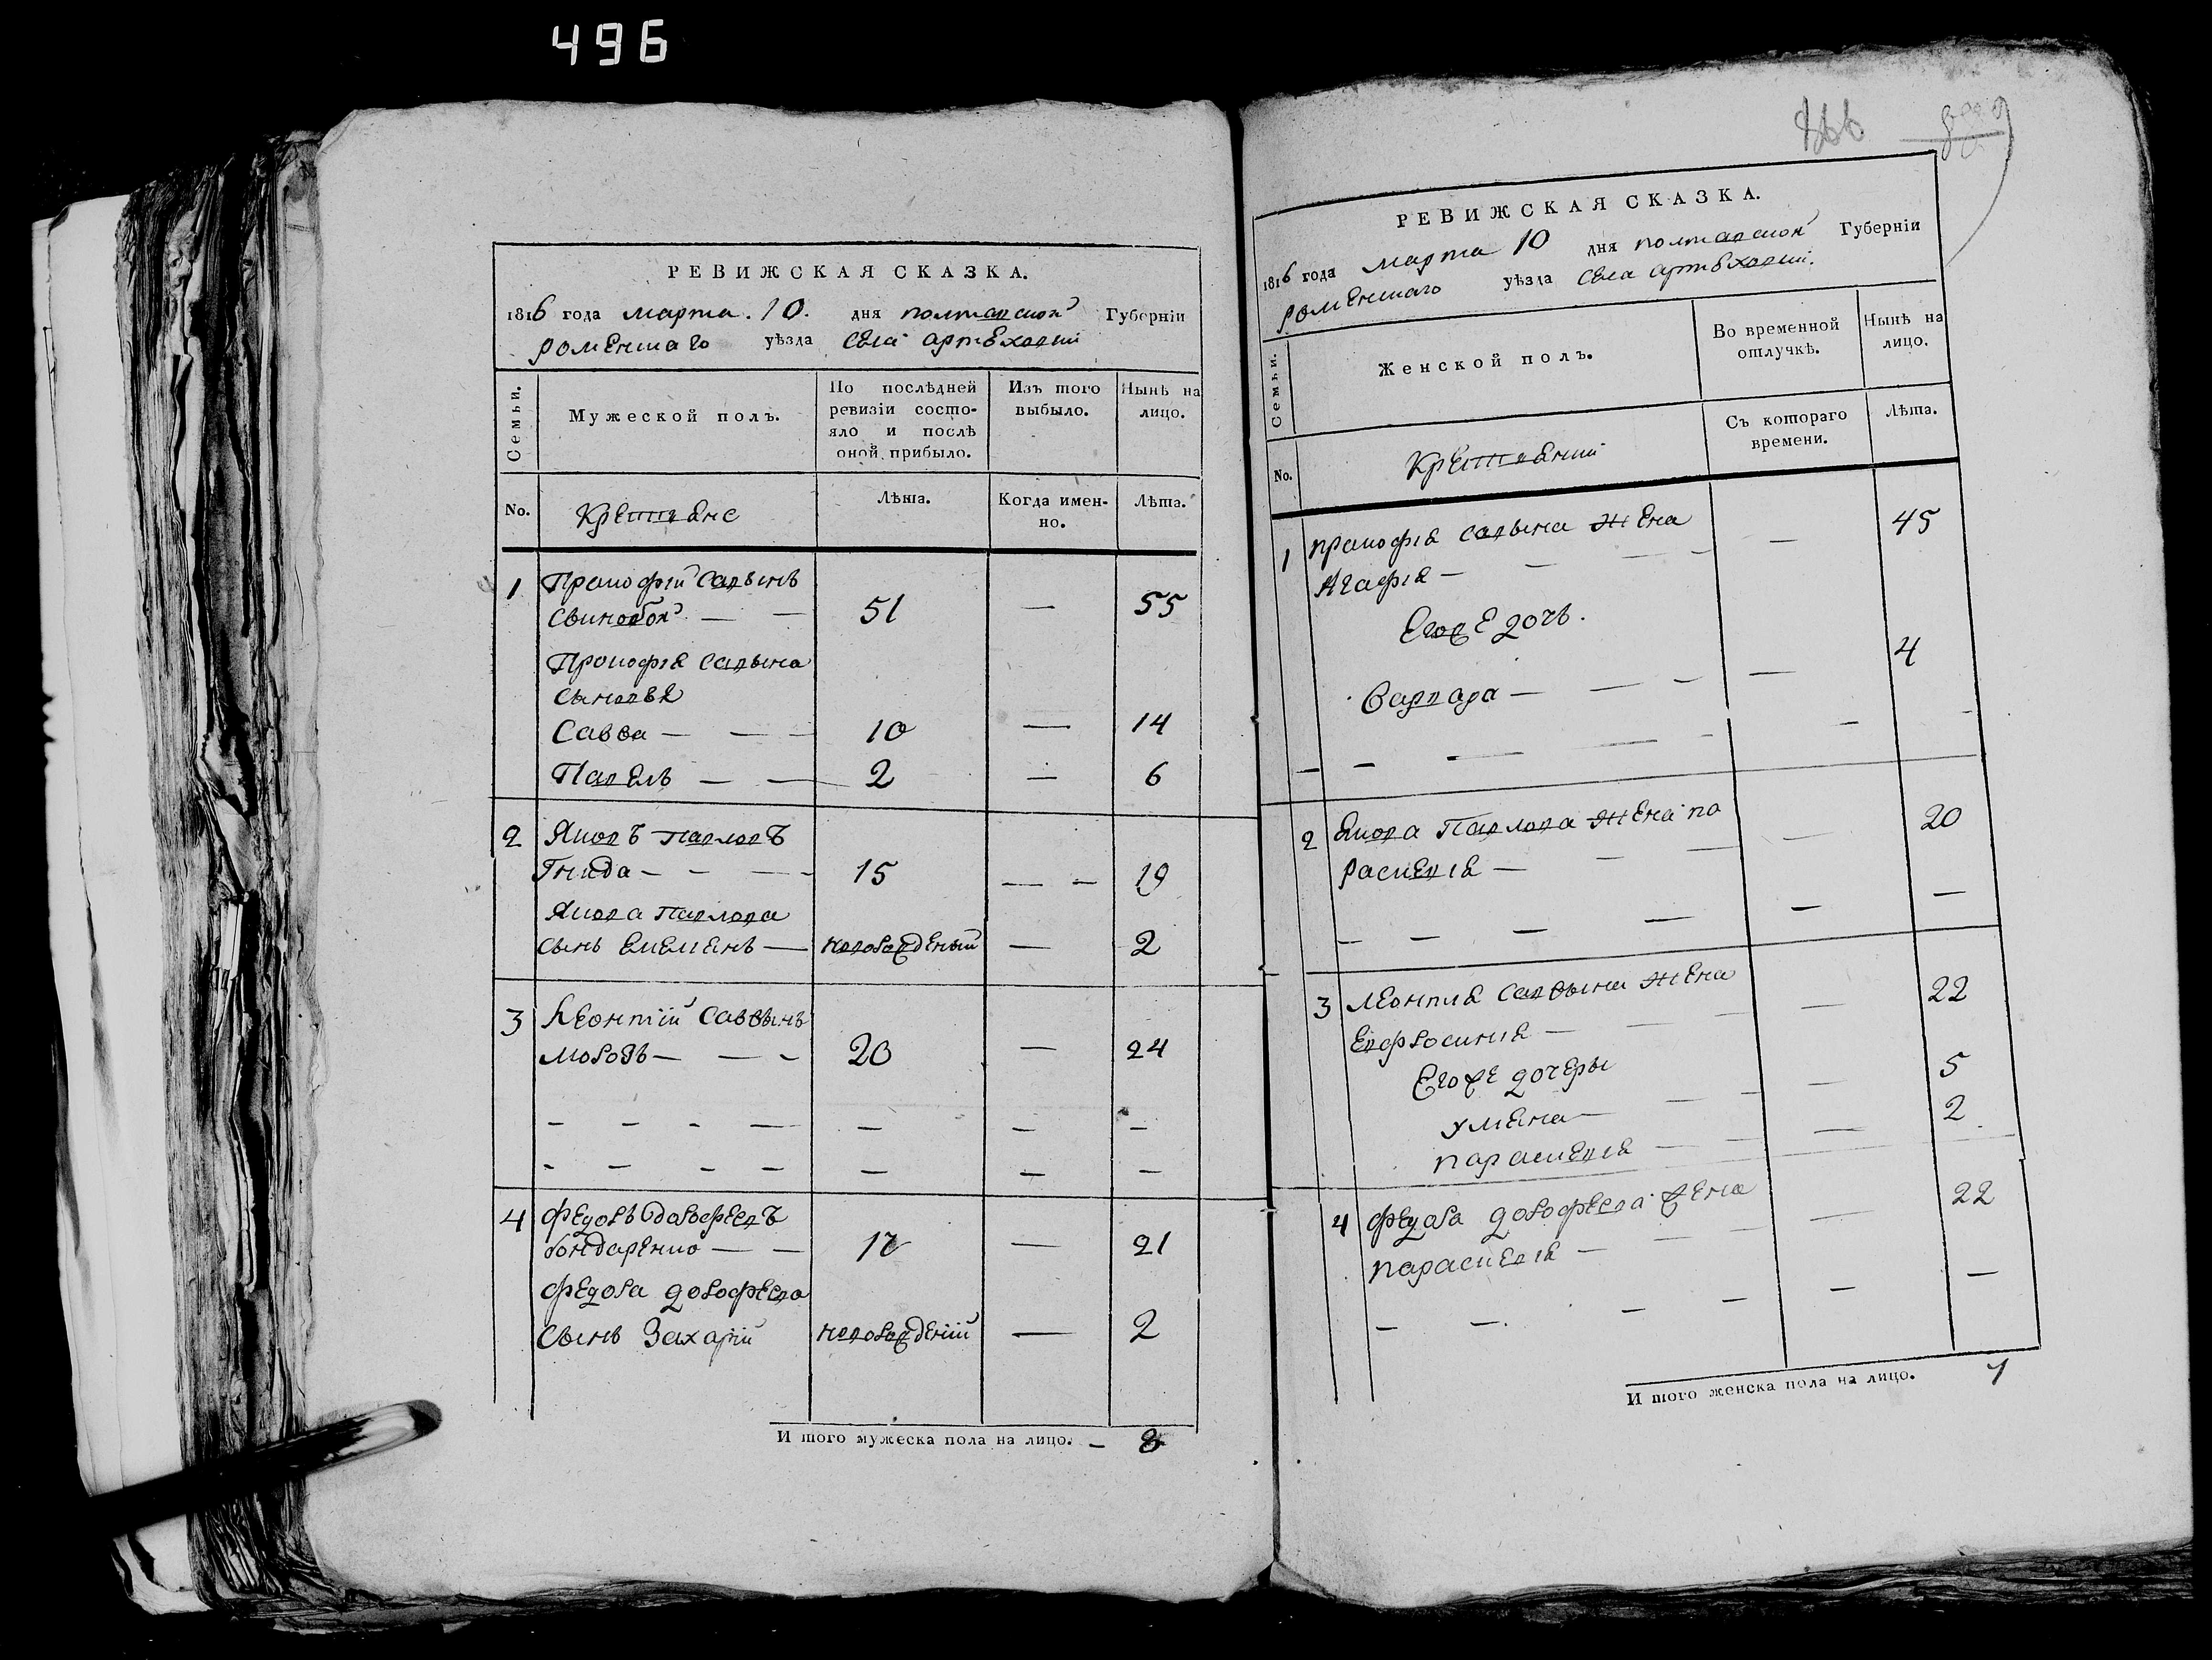 496
РЕВИЖСКАЯ СКАЗКА.
1816 года марта. 10. дня полтавской Губерніи
роменскаго уѣзда села артюховки
Семьи.
Мужеской полъ.
По послѣдней
ревизіи состо-
яло и послѣ
оной прибыло.
Изъ того
выбыло.
Нынѣ на
лицо.
No.
Крестьяне
Лѣта.
Когда имен-
но.
Лѣта.
1 Прокофій Савинъ
Свинобой — — 51 — 55
Прокофія Савина
Сыновья
Савва — — — 10 — 14
Павелъ — — 2 — 6
2 Яковъ Павловъ
Гнида — — — 15 — — 19
Якова Павлова
сынъ Климѣнъ — новорожденый — 2
3 Леонтій Саввинъ
— — — 20 — 24
— — — — — — —
— — — — — — —
4 Федоръ
бондаренко — — 17 — 21
Федора
Сынъ Захарій новорожденій — 2
И того мужеска пола на лицо. — 8
РЕВИЖСКАЯ СКАЗКА.
1816 года марта 10 дня полтавской Губерніи
роменскаго уѣзда села артюховки.
Семьи.
Женской полъ.
Во временной
отлучкѣ.
Нынѣ на
лицо.
No.
Крестьянки
Съ котораго
времени.
Лѣта.
1 прокофія савина жена
Агафія — — — — — 45
Егоже дочь.
Варвара — — — — 4
— — — — — — —
2 Якова Павлова жена па
раскевія — — — — 20
— — — — — —
3 леонтія саввина жена
Ефросинія — — — — 22
Егоже дочеры
улиана — — — — 5
параскевія — — — 2
4 федора жена
параскевія — — — — 22
— — — — — —
И того женска пола на лицо. 7